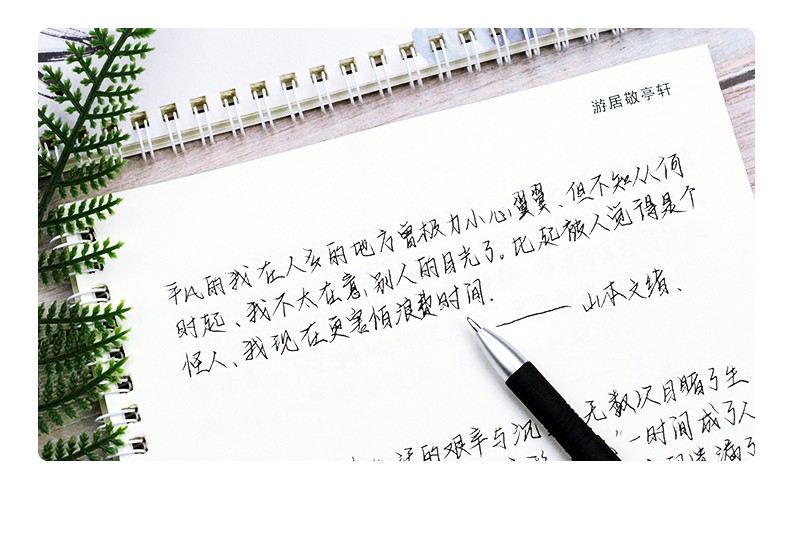 游居敬亭轩
平凡的我在人多的地方曾极力小心翼翼、但不知从何
时起、我不太在意别人的目光了。比起被人觉得是个
怪人、我现在更害怕浪费时间.
——山本文绪、
的艰辛与沉 无数次目睹了生
一时间成了人
漏了